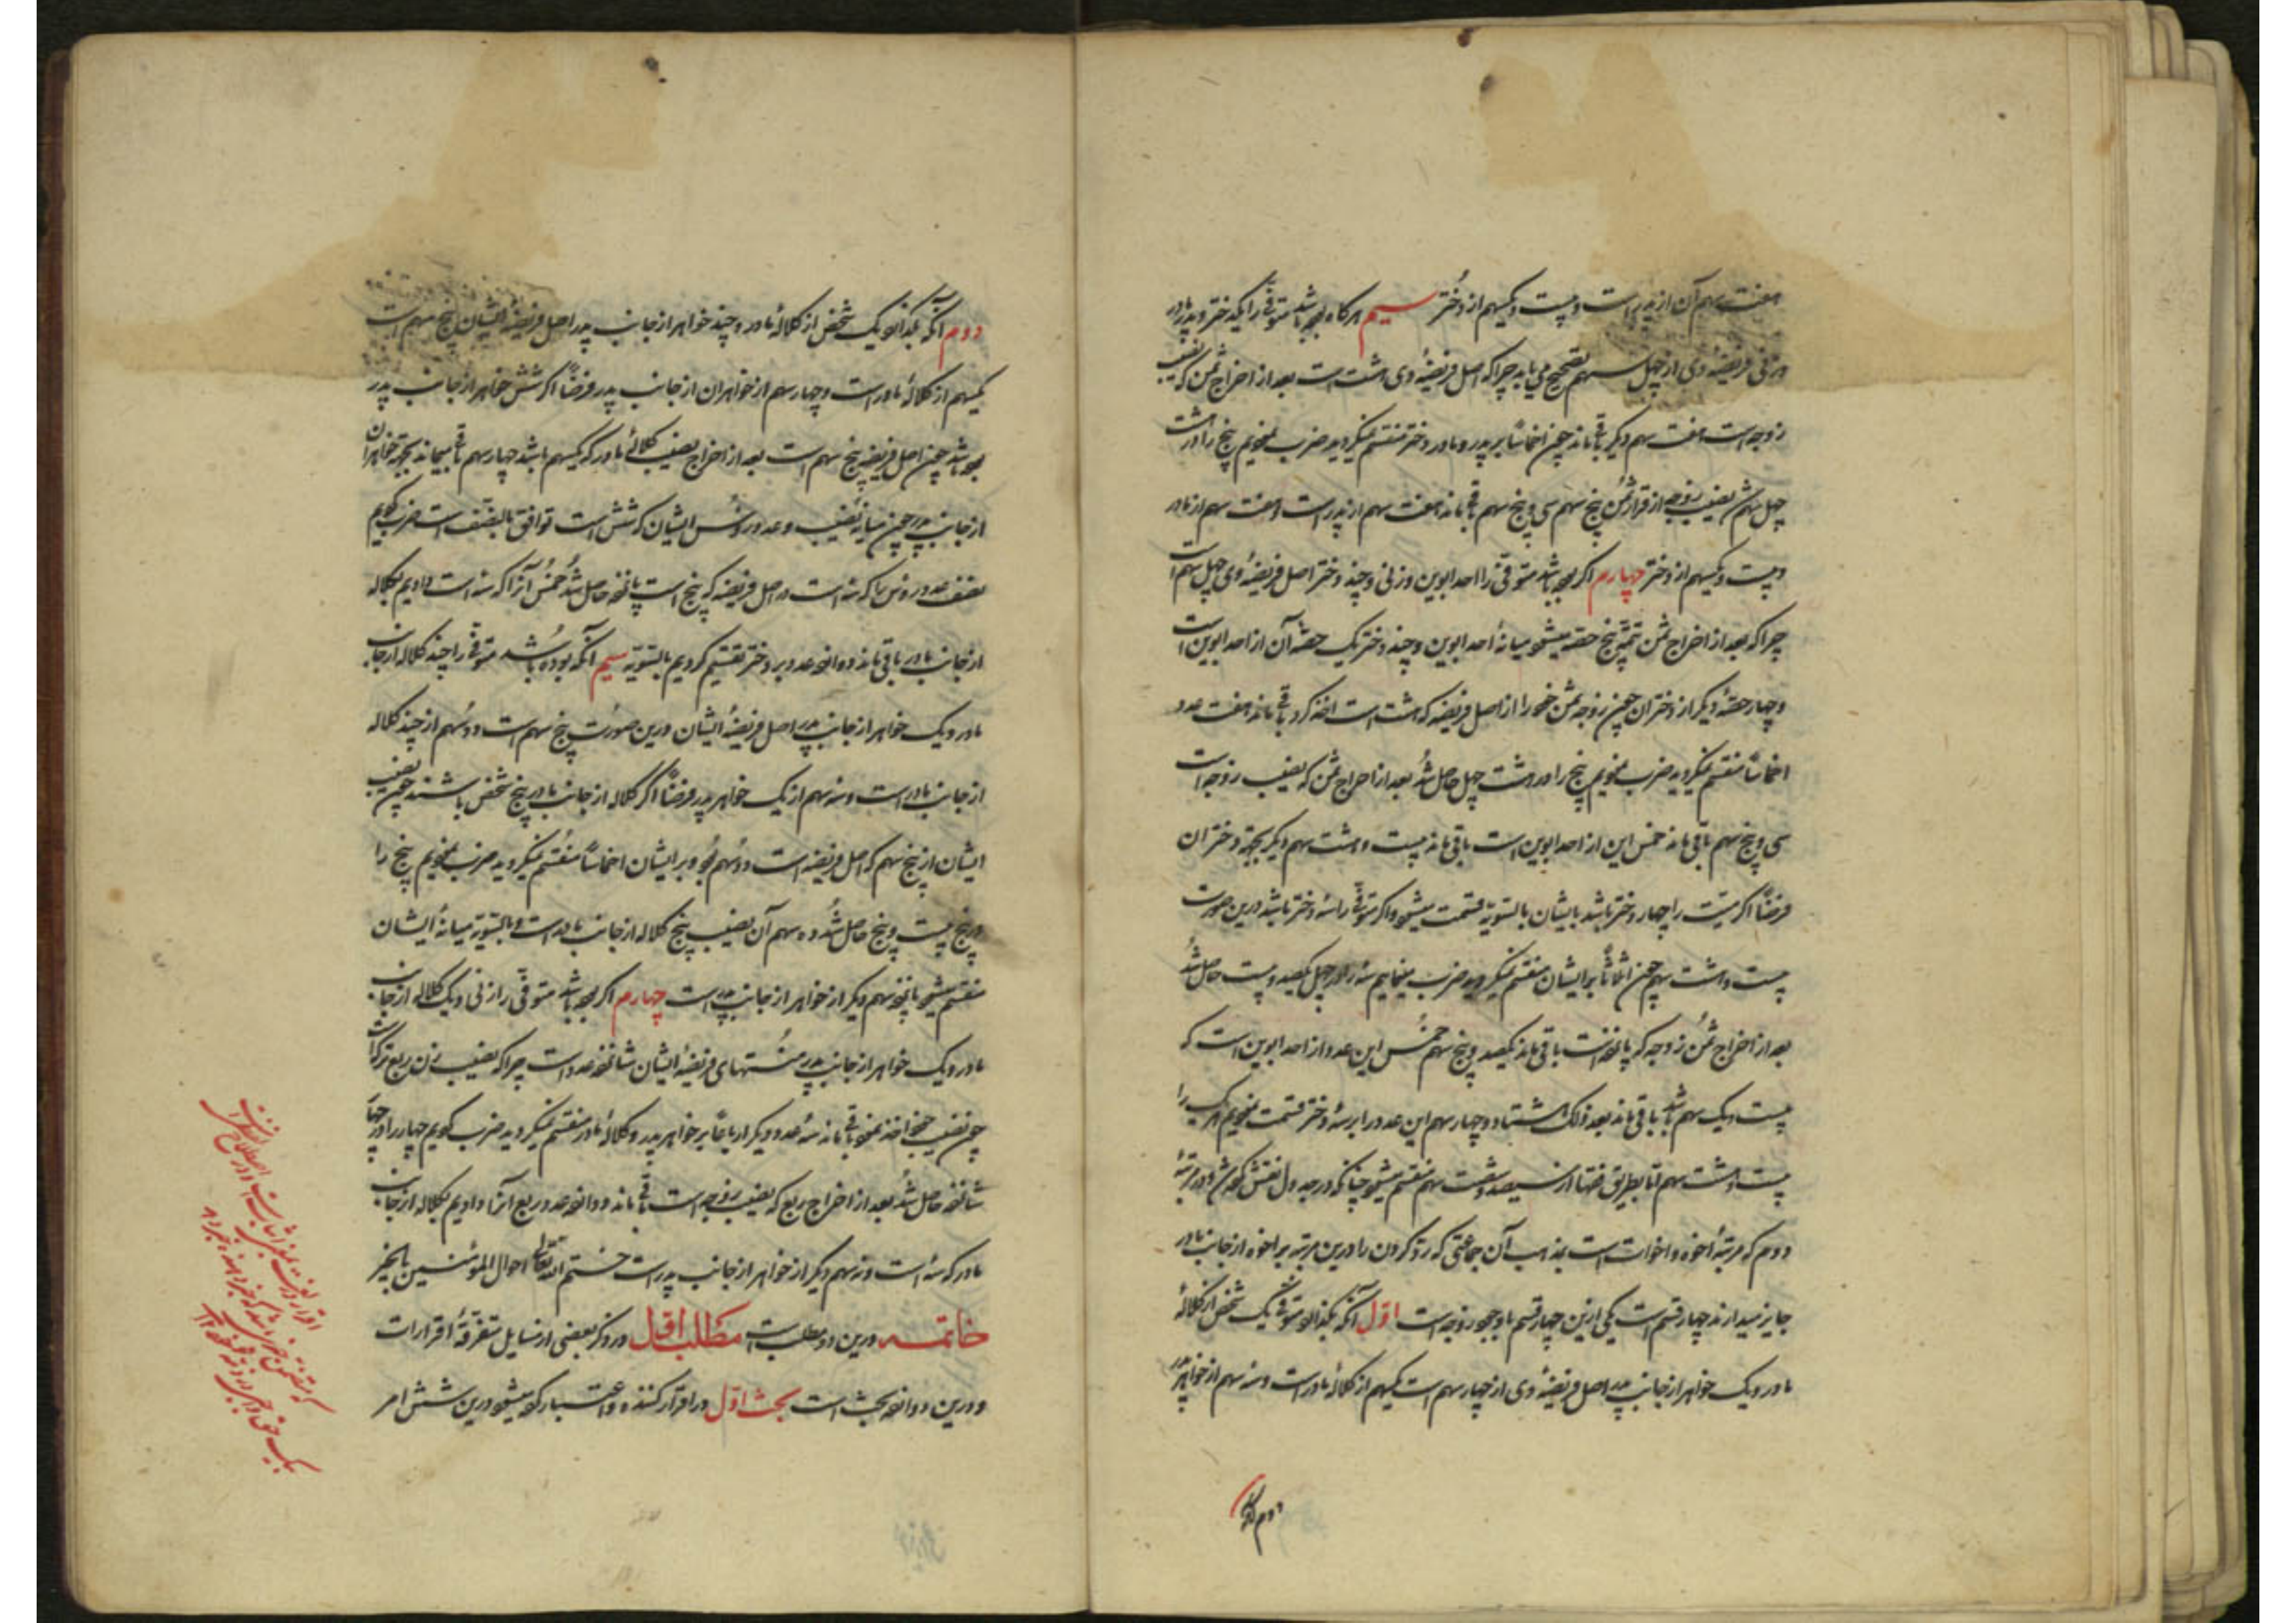 هفت سهم آن از پدر است و بیست و یکسهم از دختر سیم هرگاه بوده باشد متوفی را یکدختر و پدر و مادر
و زنی فریضهٔ وی از چهل سهم تصحیح می یابد چرا که اصل فریضهٔ وی هشت است بعد از اخراج ثمن که نصیب
زوجه است هفت سهم دیگر باقی ماند چون اخماسًا بر پدر و مادر و دختر منقسم نمیگردید ضرب نمودیم پنج را در هشت
چهل شد ثمن نصیب زوجه از قرار ثمن پنج سهم سی و پنج سهم باقی ماند هفت سهم از پدر است و هفت سهم از مادر
و بیست و یکسهم از دختر چهارم اگر بوده باشد متوفی را احد ابوین و زنی و چند دختر اصل فریضهٔ وی چهل سهم است
چرا که بعد از اخراج ثمن تتمه پنج حصه میشود میانهٔ احد ابوین و چند دختر یک حصهٔ آن از احد ابوین است
و چهار حصهٔ دیگر از دختران چون زوجه ثمن خود را از اصل فریضه که هشت است اخذ کرد باقی ماند هفت عدد
اخماسًا منقسم نمیگردید ضرب نمودیم پنج را در هشت چهل حاصل شد بعد از اخراج ثمن که نصیب زوجه است
سی و پنج سهم باقی ماند خمس این از احد ابوین است باقی ماند بیست و هشت سهم دیگر بجهة دختران
فرضًا اگر میت را چهار دختر باشد بایشان بالتسویة قسمت میشود و اگر متوفی را سه دختر باشد درین صورت
بیست و هشت سهم چون اثلاثًا بر ایشان منقسم نمیگردید ضرب مینماییم سه را در چهل یکصد و بیست حاصل شد
بعد از اخراج ثمن زوجه که پانزده است باقی ماند یکصد و پنج سهم خمس این عدد از احد ابوین است که
بیست و یک سهم باشد باقی ماند بعد ذلک هشتاد و چهار سهم این عدد را بر سه دختر قسمت نمودیم هر یک را
بیست و هشت سهم اما بطریق فقها از سیصد و شصت سهم منقسم میشود چنانکه در جدول نقش کرده شد و در مرتبهٔ
دوم که مرتبهٔ اخوه و اخوات است بمذهب آن جماعتی که رد کردن را درین مرتبه بر اخوه از جانب مادر
جایز میدارند چهار قسم است یکی ازین چهار قسم با وجود زوجه است اول آنکه بگذارد متوفی یک شخص از کلالهٔ
مادر و یک خواهر از جانب پدر اصل فریضهٔ وی از چهار سهم است یکسهم از کلالهٔ مادر است و سه سهم از خواهر پدر
دوم آنکه
دوم آنکه بگذارد یک شخص از کلالهٔ مادر و چند خواهر از جانب پدر اصل فریضهٔ ایشان پنج سهم است
یکسهم از کلالهٔ مادر است و چهار سهم از خواهران از جانب پدر فرضًا اگر شش خواهر از جانب پدر
بوده باشد چون اصل فریضه پنج سهم است بعد از اخراج نصیب کلالهٔ مادر که یکسهم باشد چهار سهم باقی میماند بجهة خواهران
از جانب پدر چون میانه نصیب و عدد رؤس ایشان که شش است توافق بالنصف است ضرب کردیم
نصف عدد رؤس را که سه است در اصل فریضه که پنج است پانزده حاصل شد خمس آنرا که سه است دادیم بکلاله
از جانب مادر باقی ماند دوازده عدد بر دختر تقسیم کردیم بالتسویه سیم آنکه بوده باشد متوفی را چند کلاله از جانب
مادر و یک خواهر از جانب پدر اصل فریضهٔ ایشان درین صورت پنج سهم است دو سهم از چند کلاله
از جانب مادر است و سه سهم از یک خواهر پدر فرضًا اگر کلاله از جانب مادر پنج شخص باشند چون نصیب
ایشان از پنج سهم که اصل فریضه است دو سهم بود و بر ایشان اخماسًا منقسم نمیگردید ضرب نمودیم پنج را
در پنج بیست و پنج حاصل شد ده سهم آن نصیب پنج کلاله از جانب مادر است و بالتسویه میانهٔ ایشان
منقسم میشود پانزده سهم دیگر از خواهر از جانب پدر است چهارم اگر بوده باشد متوفی را زنی و یک کلاله از جانب
مادر و یک خواهر از جانب پدر منتهای فریضهٔ ایشان شانزده عدد است چرا که نصیب زن ربع ترکه است
چون نصیب خود اخذ نمود باقی ماند سه عدد و دیگر ارباعًا بر خواهر پدر و کلالهٔ مادر منقسم نمیگردید ضرب کردیم چهار را در چهار
شانزده حاصل شد بعد از اخراج ربع که نصیب زوجه است باقی ماند دوازده عدد ربع آنرا دادیم بکلاله از جانب
مادر که سه است و نه سهم دیگر از خواهر از جانب پدر است ختم الله تعالی احوال المؤمنین بالخیر
خاتمه درین دو مطلب است مطلب اول در ذکر بعضی از مسایل متفرقهٔ اقرارات
و درین دوازده بحث است بحث اول در اقرار کننده و اعتبار کرده میشود درین شش امر